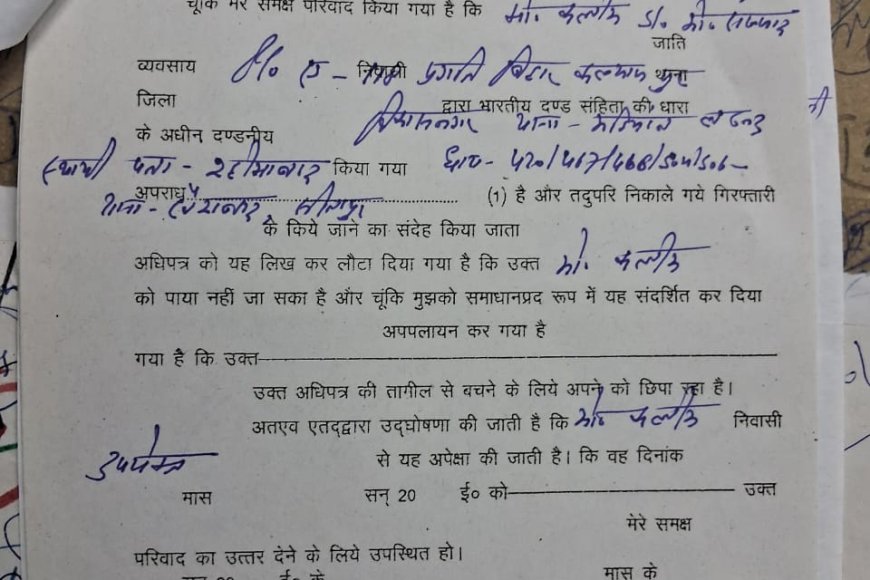 चूंकि मेरे समक्ष परिवाद किया गया है कि मो. कलीम
जाति
व्यवसाय निवासी प्रगति विहार कल्याणपुर थाना
जिला द्वारा भारतीय दण्ड संहिता की धारा
थाना-
के अधीन दण्डनीय
स्थायी पता - रहीमाबाद किया गया धारा- 420/467/468/504/506-
अपराध (1) है और तदुपरि निकाले गये गिरफ्तारी
थाना- सीतापुर
के किये जाने का संदेह किया जाता
अधिपत्र को यह लिख कर लौटा दिया गया है कि उक्त मो. कलीम
को पाया नहीं जा सका है और चूंकि मुझको समाधानप्रद रूप में यह संदर्शित कर दिया
अपपलायन कर गया है
गया है कि उक्त
उक्त अधिपत्र की तागील से बचने के लिये अपने को छिपा रहा है।
अतएव एतद्द्वारा उद्घोषणा की जाती है कि मो. कलीम निवासी
उपरोक्त से यह अपेक्षा की जाती है। कि वह दिनांक
मास सन् 20 ई० को उक्त
मेरे समक्ष
परिवाद का उत्तर देने के लिये उपस्थित हो।
मास के